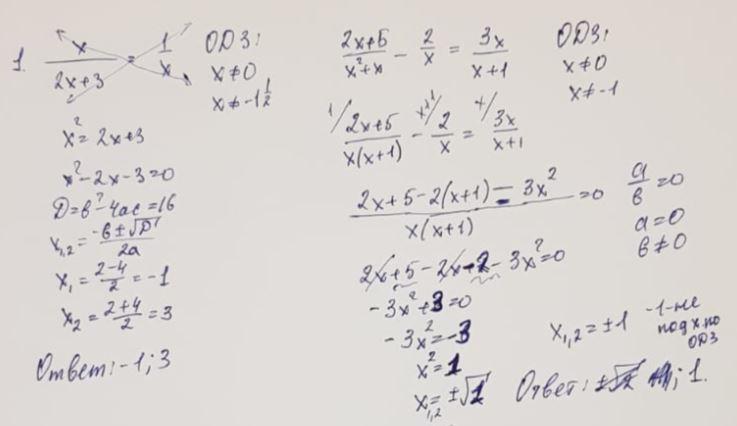 1. x/(2x+3) = 1/x ОДЗ:
x≠0
x≠-1 1/2
x²=2x+3
x²-2x-3=0
D=в²-4ac=16
x₁,₂=(-в±√D)/2a
x₁=(2-4)/2=-1
x₂=(2+4)/2=3
Ответ:-1;3
(2x+5)/(x²+x) - 2/x = 3x/(x+1) ОДЗ:
x≠0
x≠-1
1/ (2x+5)/(x(x+1)) - x+1/ 2/x = x/ 3x/(x+1)
(2x+5-2(x+1)-3x²)/(x(x+1)) =0
a/в=0
a=0
в≠0
2x+5-2x-2-3x²=0
-3x²+3=0
-3x²=-3
x²=1
x₁,₂=±√1
x₁,₂=±1 -1-не
подх.по
ОДЗ
Ответ: 1.